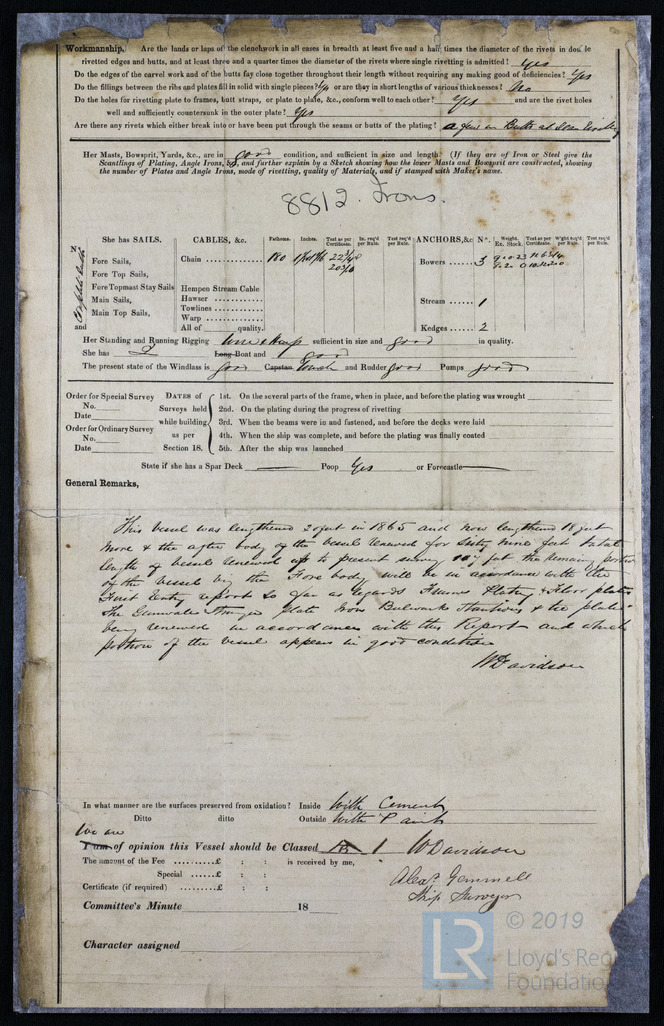 Workmanship. Are the lands or laps of the clenchwork in all cases in breadth at least five and a half times the diameter of the rivets in double
rivetted edges and butts, and at least three and a quarter times the diameter of the rivets where single rivetting is admitted? Yes
Do the edges of the carvel work and of the butts fay close together throughout their length without requiring any making good of deficiencies? Yes
Do the fillings between the ribs and plates fill in solid with single pieces? Yes or are they in short lengths of various thicknesses? No
Do the holes for rivetting plate to frames, butt straps, or plate to plate, &c., conform well to each other? Yes and are the rivet holes
well and sufficiently countersunk in the outer plate? Yes
Are there any rivets which either break into or have been put through the seams or butts of the plating? a few in Butts at
Her Masts, Bowsprit, Yards, &c., are in good condition, and sufficient in size and length. (If they are of Iron or Steel give the
Scantlings of Plating, Angle Irons, &c, and further explain by a Sketch showing how the lower Masts and Bowsprit are constructed, showing
the number of Plates and Angle Irons, mode of rivetting, quality of Materials, and if stamped with Maker's name.
8812 Irons.
She has SAILS. CABLES, &c. Fathoms. Inches. Test as per Certificate. In. req'd per Rule. Test req'd per Rule. ANCHORS, &c Nº. Weight. Ex. Stock. Test as per Certificate. W'ght req'd per Rule. Test req'd per Rule.
N.
Fore Sails, Chain 180 Bowers 3
Fore Top Sails,
Fore Topmast Stay Sails Hempen Stream Cable
Main Sails, Hawser Stream 1
Main Top Sails, Towlines
Warp
and All of quality. Kedges 2
Her Standing and Running Rigging Wire & Hemp sufficient in size and good in quality.
She has 2 Long Boat and 1 good
The present state of the Windlass is good Capstan and Rudder good Pumps good
Order for Special Survey No. Date
Order for Ordinary Survey No. Date
DATES of Surveys held while building as per Section 18.
1st. On the several parts of the frame, when in place, and before the plating was wrought
2nd. On the plating during the progress of rivetting
3rd. When the beams were in and fastened, and before the decks were laid
4th. When the ship was complete, and before the plating was finally coated
5th. After the ship was launched
State if she has a Spar Deck Poop Yes or Forecastle
General Remarks,
This vessel was lengthened 20 feet in 1865 and now lengthened 18 feet
more & the after body of the vessel renewed for sixty nine feet total
length of vessel renewed up to present survey 107 feet the remaining portion
of the vessel viz the Fore body will be in accordance with the
First Entry report so far as regards Frames Plating & Floor plates
The Gunwale Stringer plate Iron Bulwark Stantions & tie plates
being renewed in accordance with this Report and which
portion of the vessel appears in good condition
WDavidson
In what manner are the surfaces preserved from oxidation? Inside With Cement
Ditto ditto Outside With Paint
We are
I am of opinion this Vessel should be Classed 1 WDavidson
The amount of the Fee ..........£ : : is received by me,
Special ......£ : :
Certificate (if required) .......£ : :
Alexr Gemmell
Ship Surveyor
Committee's Minute 18
Character assigned
LR © 2019
Lloyd's Reg
Foundatio